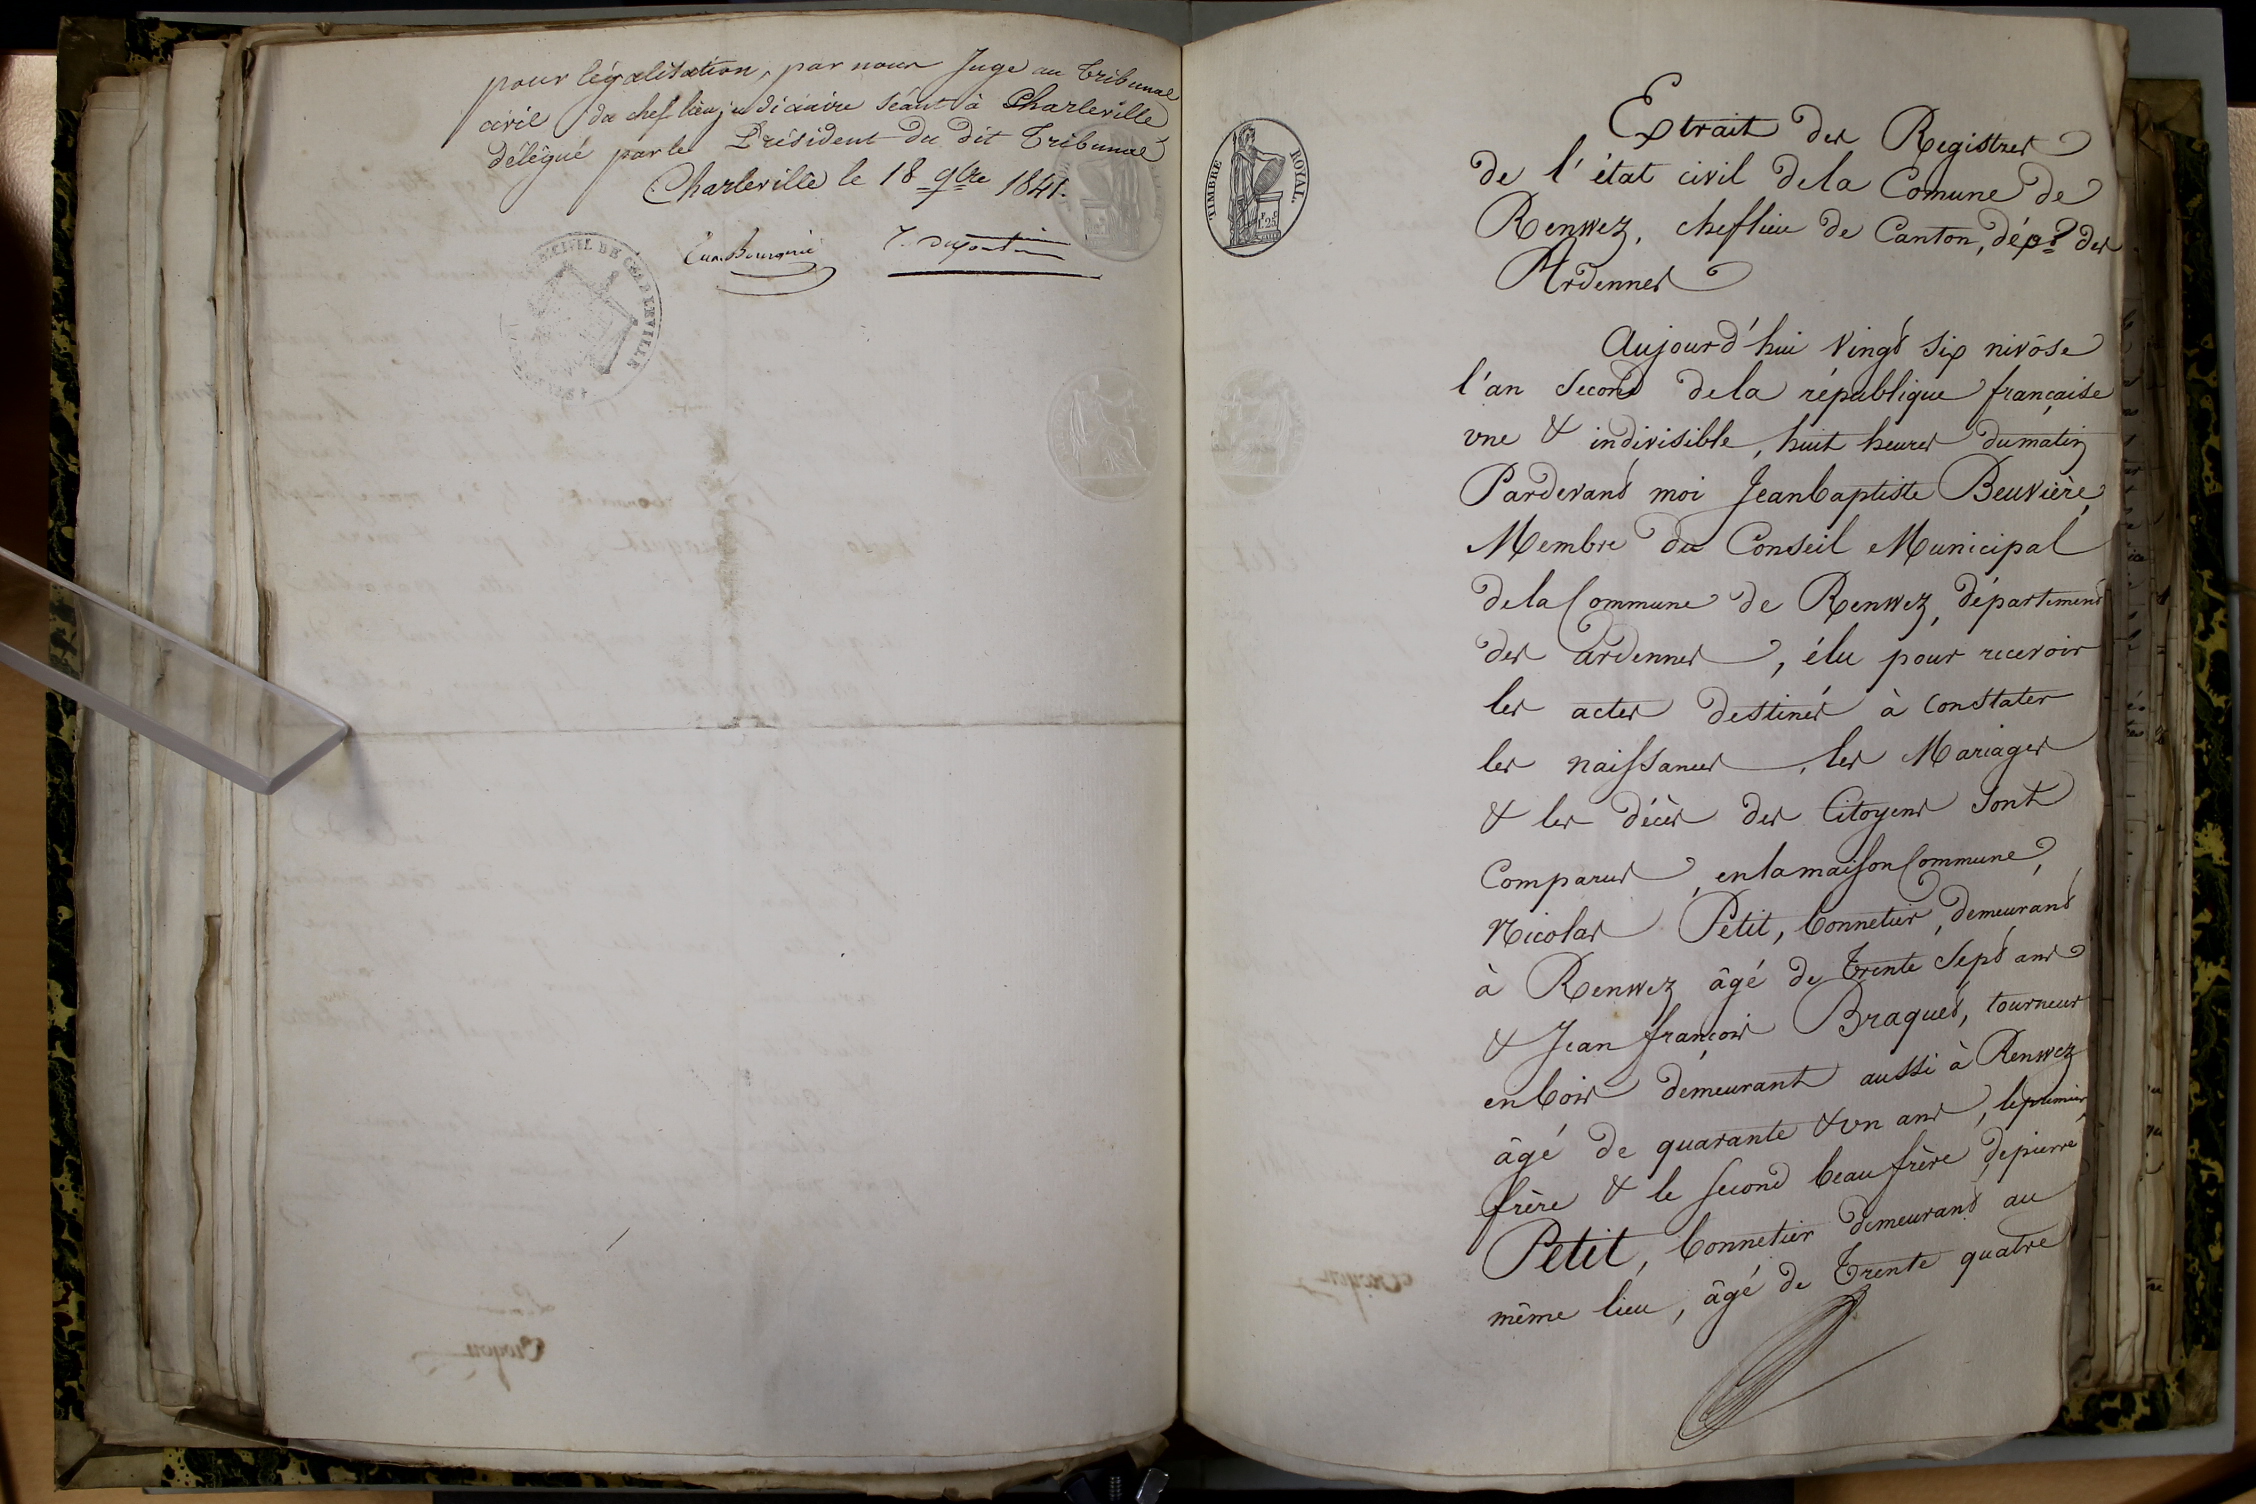 pour légalisation, par nous Juge au Tribunal
civil du chef lieu judiciaire séant à Charleville
délégué par le Président du dit Tribunal
Charleville le 18 9bre 1841.
CIVIL DE CHARLEVILLE
TIMBRE ROYAL.
Extrait des Registres
de l'état civil de la Comune de
Renwez, cheflieu de Canton, dépt des
Ardennes
Aujourd'hui vingt six nivôse
l'an second de la république française
une & indivisible, huit heures du matin
Pardevant moi Jean baptiste Beuvière,
Membre du Conseil Municipal
de la Commune de Renwez, département
des ardennes, élu pour recevoir
les actes destinés à constater
les naissances, les Mariages
& les décès des Citoyens sont
Comparus, en la maison Commune,
Nicolas Petit, bonnetier, demeurant
à Renwez âgé de trente sept ans
& Jean françois Braquet, tourneur
en bois demeurant aussi à Renwez
âgé de quarante & un ans, le premier
frère & le second beau frère de pierre
Petit, bonnetier demeurant au
même lieu, âgé de trente quatre